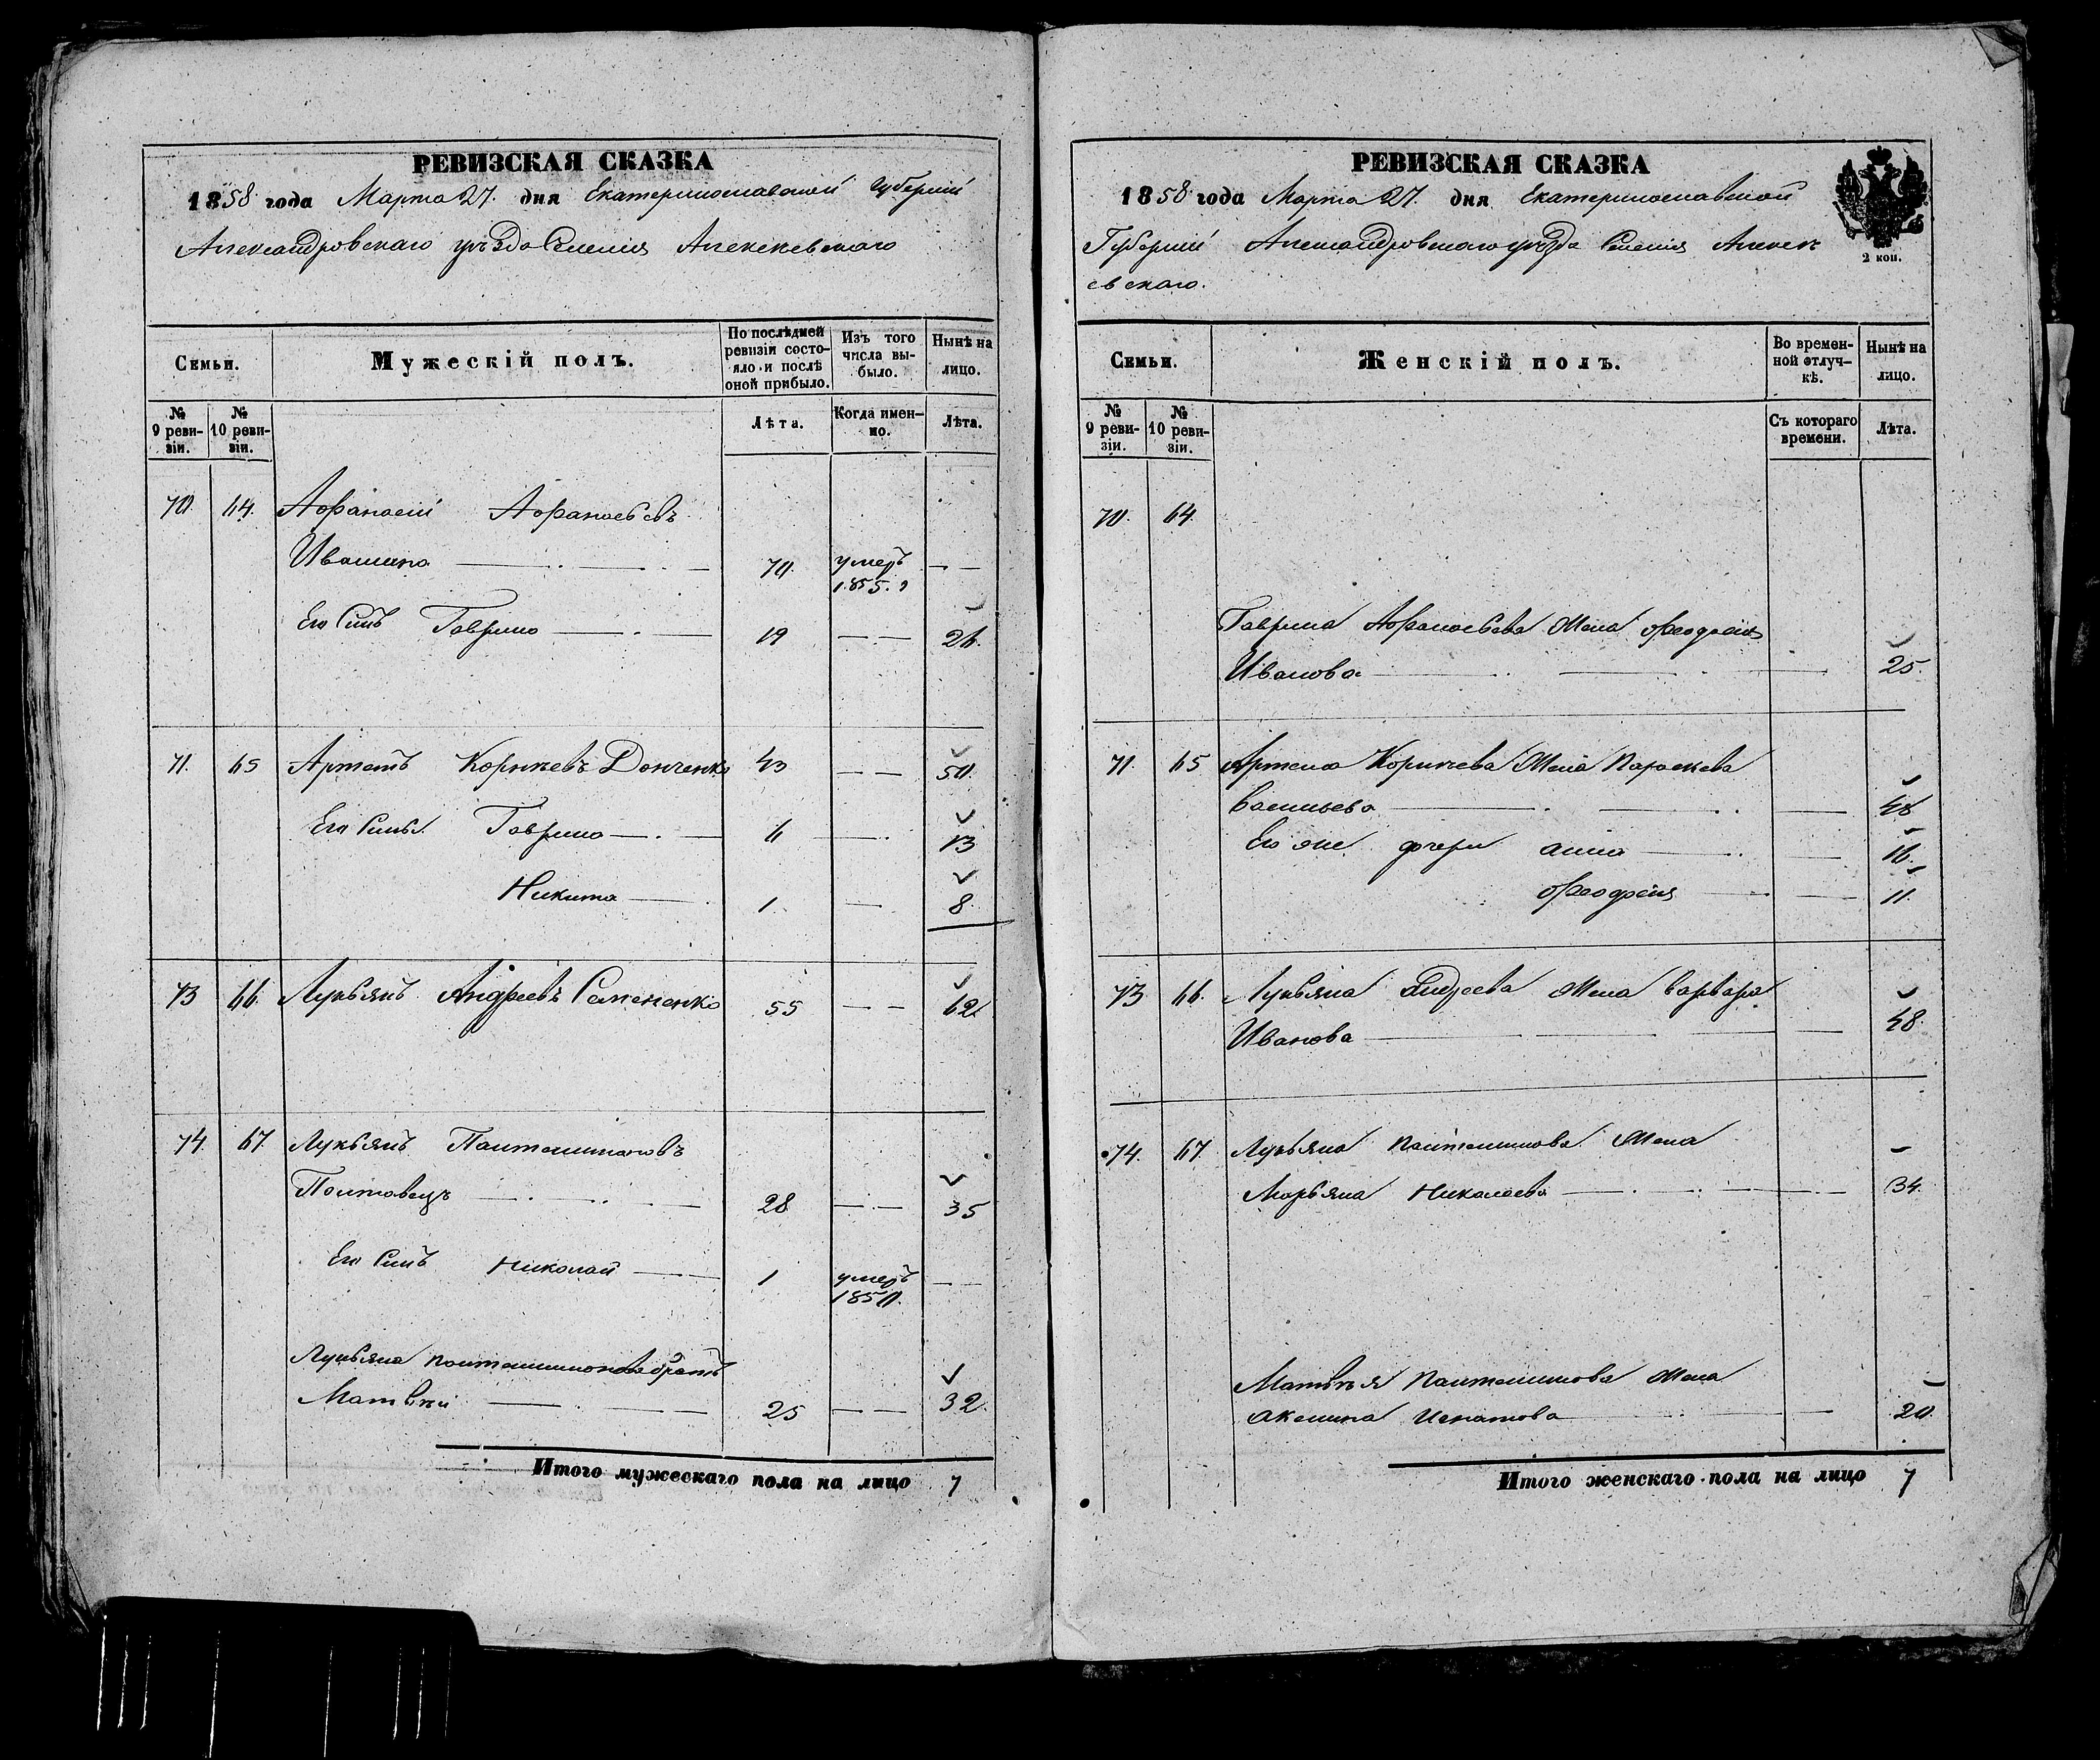 РЕВИЗСКАЯ СКАЗКА
1858 года Марта 27. дня Екатеринославской Губерніи
Александровскаго уѣзда Селенія Алексѣевскаго
Семьи.
Мужескій полъ.
По послѣдней ревизіи состояло и послѣ оной прибыло.
Изъ того числа выбыло.
Нынѣ на лицо.
№ 9 ревизіи.
№ 10 ревизіи.
Лѣта.
Когда именно.
Лѣта.
70. 64. Афанасій Афанасьевъ
Ивашина 70. умеръ 1855. —
Его Сынъ Гаврило 19 — 26.
71. 65 Артемъ Корнѣевъ Донченко 43 — 50.
Его Сыны Гаврило 6 — 13
Никита 1. — 8.
73 66. Лукьянъ Андреевъ Семененко 55 — 62.
74. 67. Лукьянъ Пантелимоновъ
Полтавецъ 28 — 35
Его Сынъ Николай 1 умеръ 1850. —
Лукьяна Пантелимонова братъ
Матвѣй 25 — 32.
Итого мужескаго пола на лицо 7
РЕВИЗСКАЯ СКАЗКА
1858 года Марта 27. дня Екатеринославской
Губерніи Александровскаго уѣзда Селенія Алексѣ
евскаго.
2 коп.
Семьи.
Женскій полъ.
Во временной отлучкѣ.
Нынѣ на лицо.
№ 9 ревизіи.
№ 10 ревизіи.
Съ котораго времени.
Лѣта.
70. 64.
Гаврила Афанасьева Жена Феодосія
Иванова — 25.
71. 65 Артема Корнѣева Жена Параскева
Васильева — 48
Его же дочери Анна — 16.
Феодосія — 11.
73 66. Лукьяна Андреева Жена Варвара
Иванова — 48.
74. 67 Лукьяна Пантелимонова Жена
Марьяна Николаева — 34.
Матвѣя Пантелимонова Жена
Акелина Игнатова — 20.
Итого женскаго пола на лицо 7